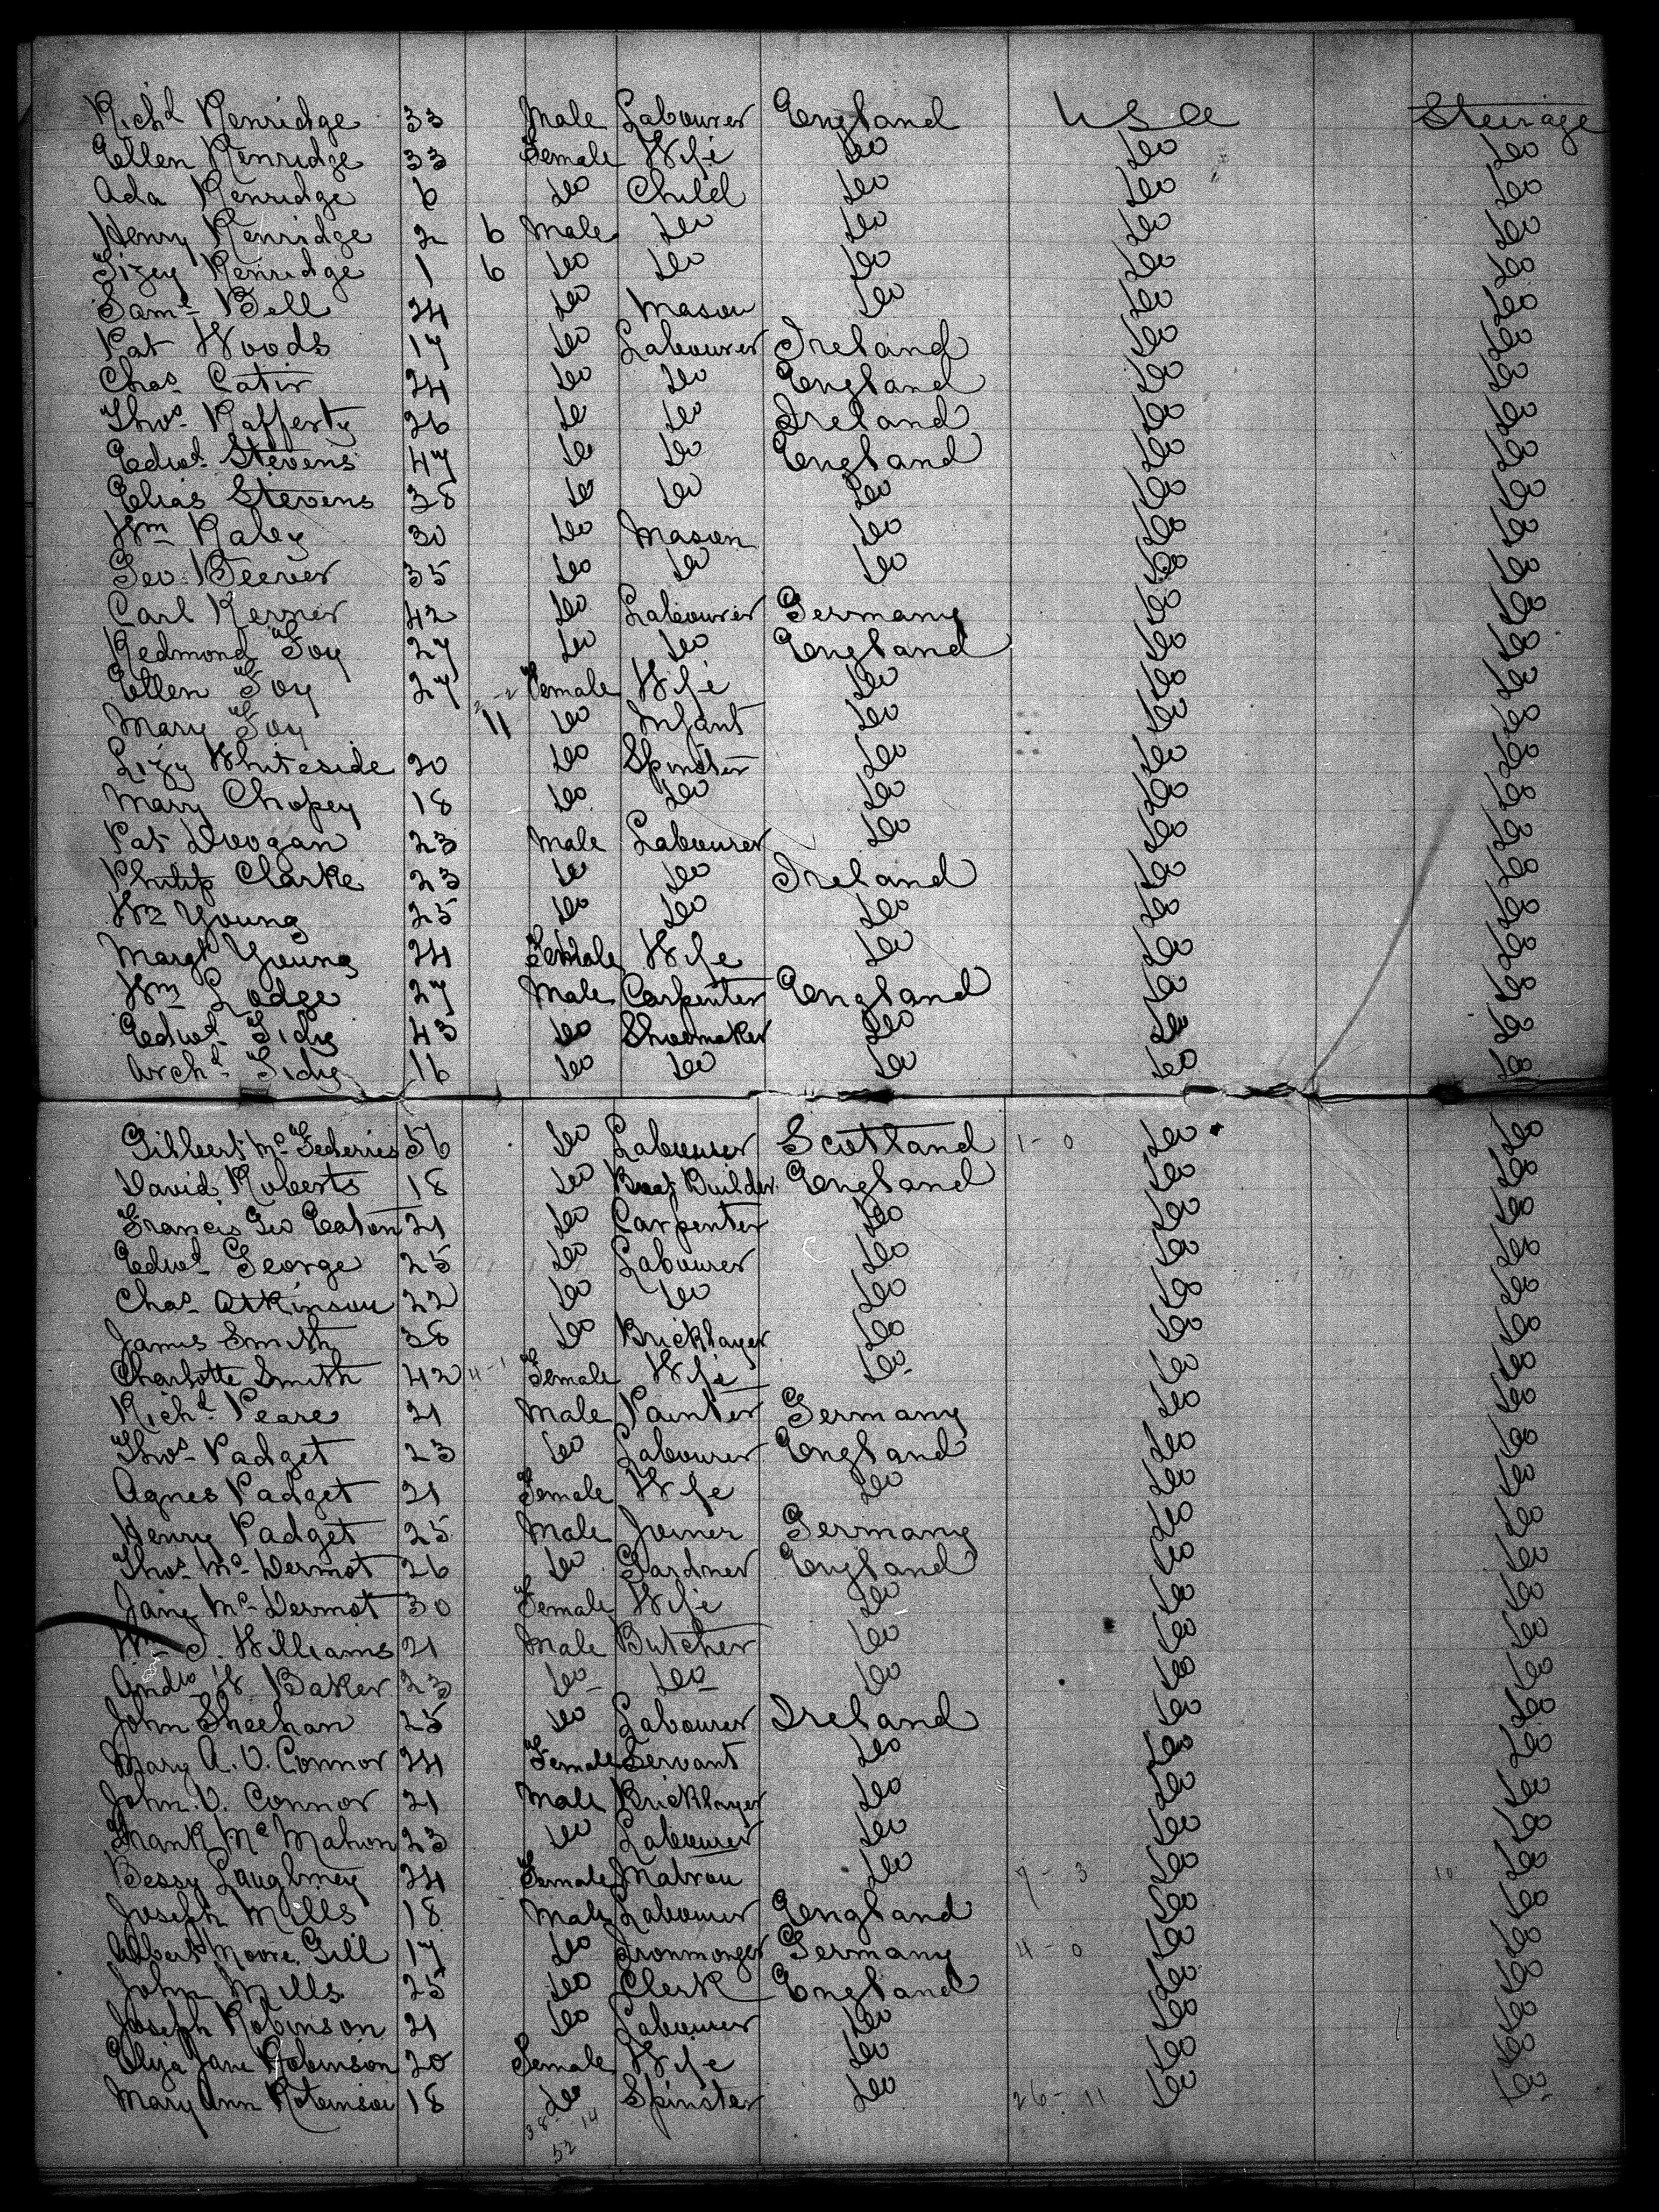 Richd Kenridge 33 Male Labourer England USA Steerage
Ellen Kenridge 33 Female Wife Do Do Do
Ada Kenridge 6 Do Child Do Do Do
Henry Kenridge 2 6 Male Do Do Do Do
Kenridge 1 6 Do Do Do Do Do
Saml Bell 24 Do Mason Do Do Do
Pat Woods 17 Do Labourer Ireland Do Do
Chas Do Do England Do Do
Thos Rafferty 26 Do Do Ireland Do Do
Edwd Stevens 47 Do Do England Do Do
Elias Stevens 38 Do Do Do Do Do
Wm Raley 30 Do Mason Do Do Do
Geo Beever 35 Do Do Do Do Do
Carl Kerner 42 Do Labourer Germany Do Do
Redmond Foy 27 Do Do England Do Do
Ellen Foy 27 Female Wife Do Do Do
Mary Foy 11 Do Infant Do Do Do
Lizy Whiteside 20 Do Spinster Do Do Do
Mary 18 Do Do Do Do Do
Pat Doogan 23 Male Labourer Do Do Do
Philip Clarke 23 Do Do Ireland Do Do
Wm Young 25 Do Do Do Do Do
Margt Young 24 Female Wife Do Do Do
Wm Lodge 27 Male Carpenter England Do Do
Edwd 43 Do Shoemaker Do Do Do
Archd 16 Do Do Do Do Do
Gilbert 56 Do Labourer Scotland 1 - 0 Do Do
David Roberts 18 Do Boat Builder England Do Do
Francis Geo Eaton 21 Do Carpenter Do Do Do
Edwd George 25 Do Labourer Do Do Do
Chas Atkinson 22 Do Do Do Do Do
James Smith 38 Do Bricklayer Do Do Do
Charlotte Smith 42 Female Wife Do Do Do
Richd Peare 21 Male Painter Germany Do Do
Thos Padget 23 Do Labourer England Do Do
Agnes Padget 21 Female Wife Do Do Do
Henry Padget 25 Male Joiner Germany Do Do
Thos McDermot 26 Do Gardner England Do Do
Jane McDermot 30 Female Wife Do Do Do
Wm J. Williams 21 Male Butcher Do Do Do
Andw W. Baker 23 Do Do Do Do Do
John Sheehan 25 Do Labourer Ireland Do Do
Mary A. O. Connor 24 Female Servant Do Do Do
John. O. Connor 21 Male Bricklayer Do Do Do
Frank McMahon 23 Do Labourer Do Do Do
Bessy 24 Female Matron Do 7 - 3 Do 10 Do
Joseph Mills 18 Male Labourer England Do Do
Albert Moore Gill 17 Do Ironmonger Germany 4 - 0 Do Do
John Mills 25 Do Clerk England Do Do
Joseph Robinson 21 Do Labourer Do Do Do
Eliza Jane Robinson 20 Female Wife Do Do Do
Mary Ann Robinson 18 Do Spinster Do 26 - 11 Do Do
38 - 14
52